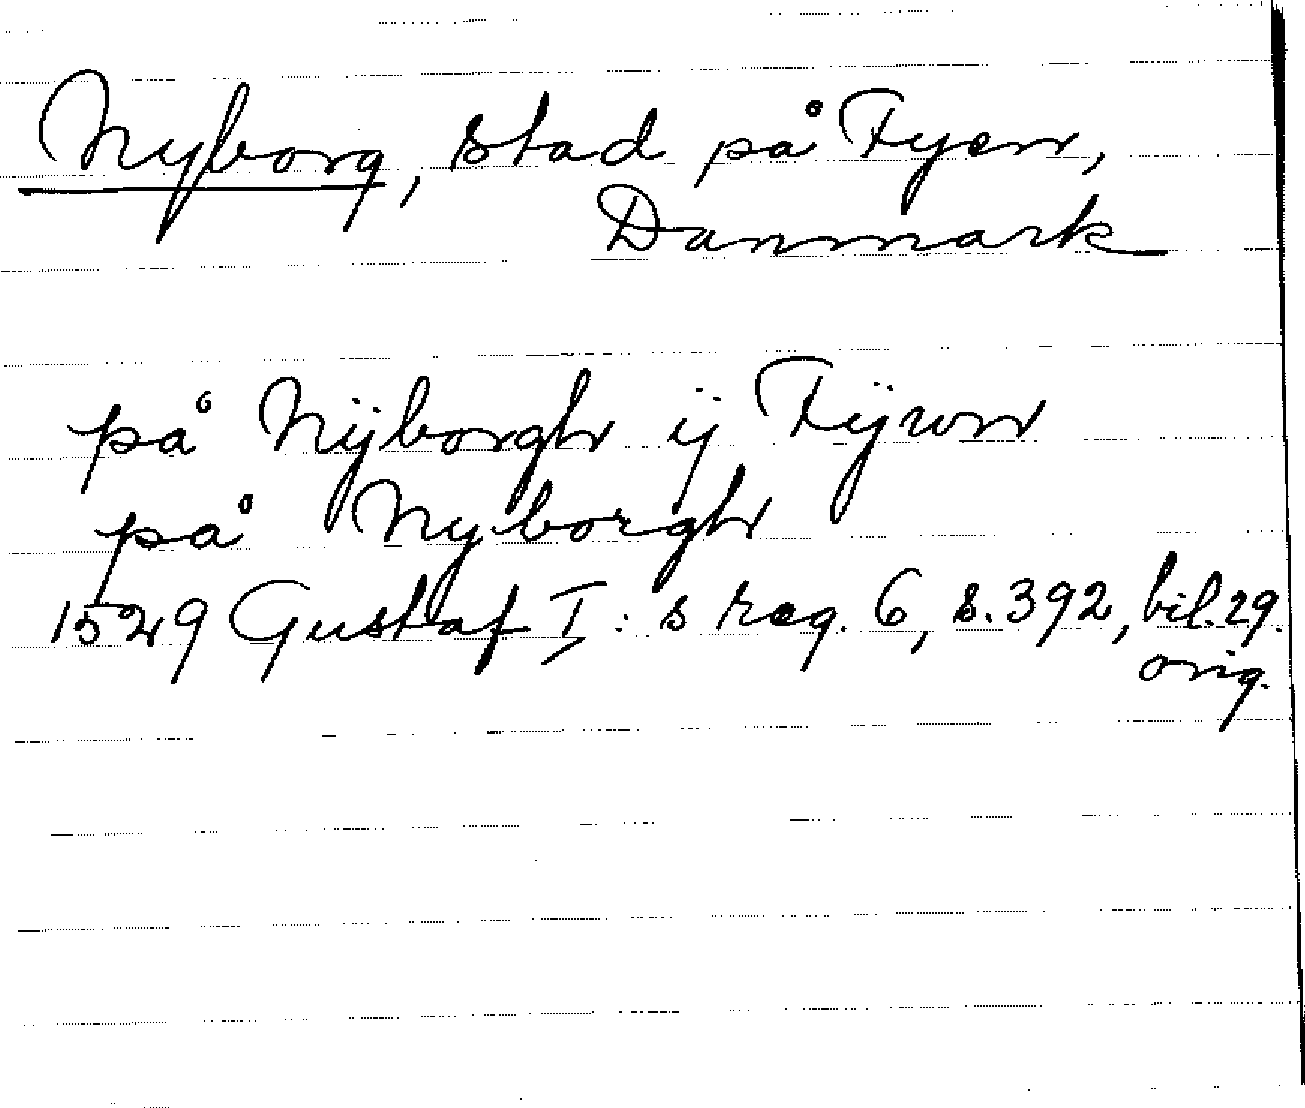 Nyborg, stad på Fyen,
Danmark
på Nÿborgh ÿ Fÿwn
på Nyborgh
1529 Gustaf I: s reg. 6, s. 392, bil. 29.
orig.